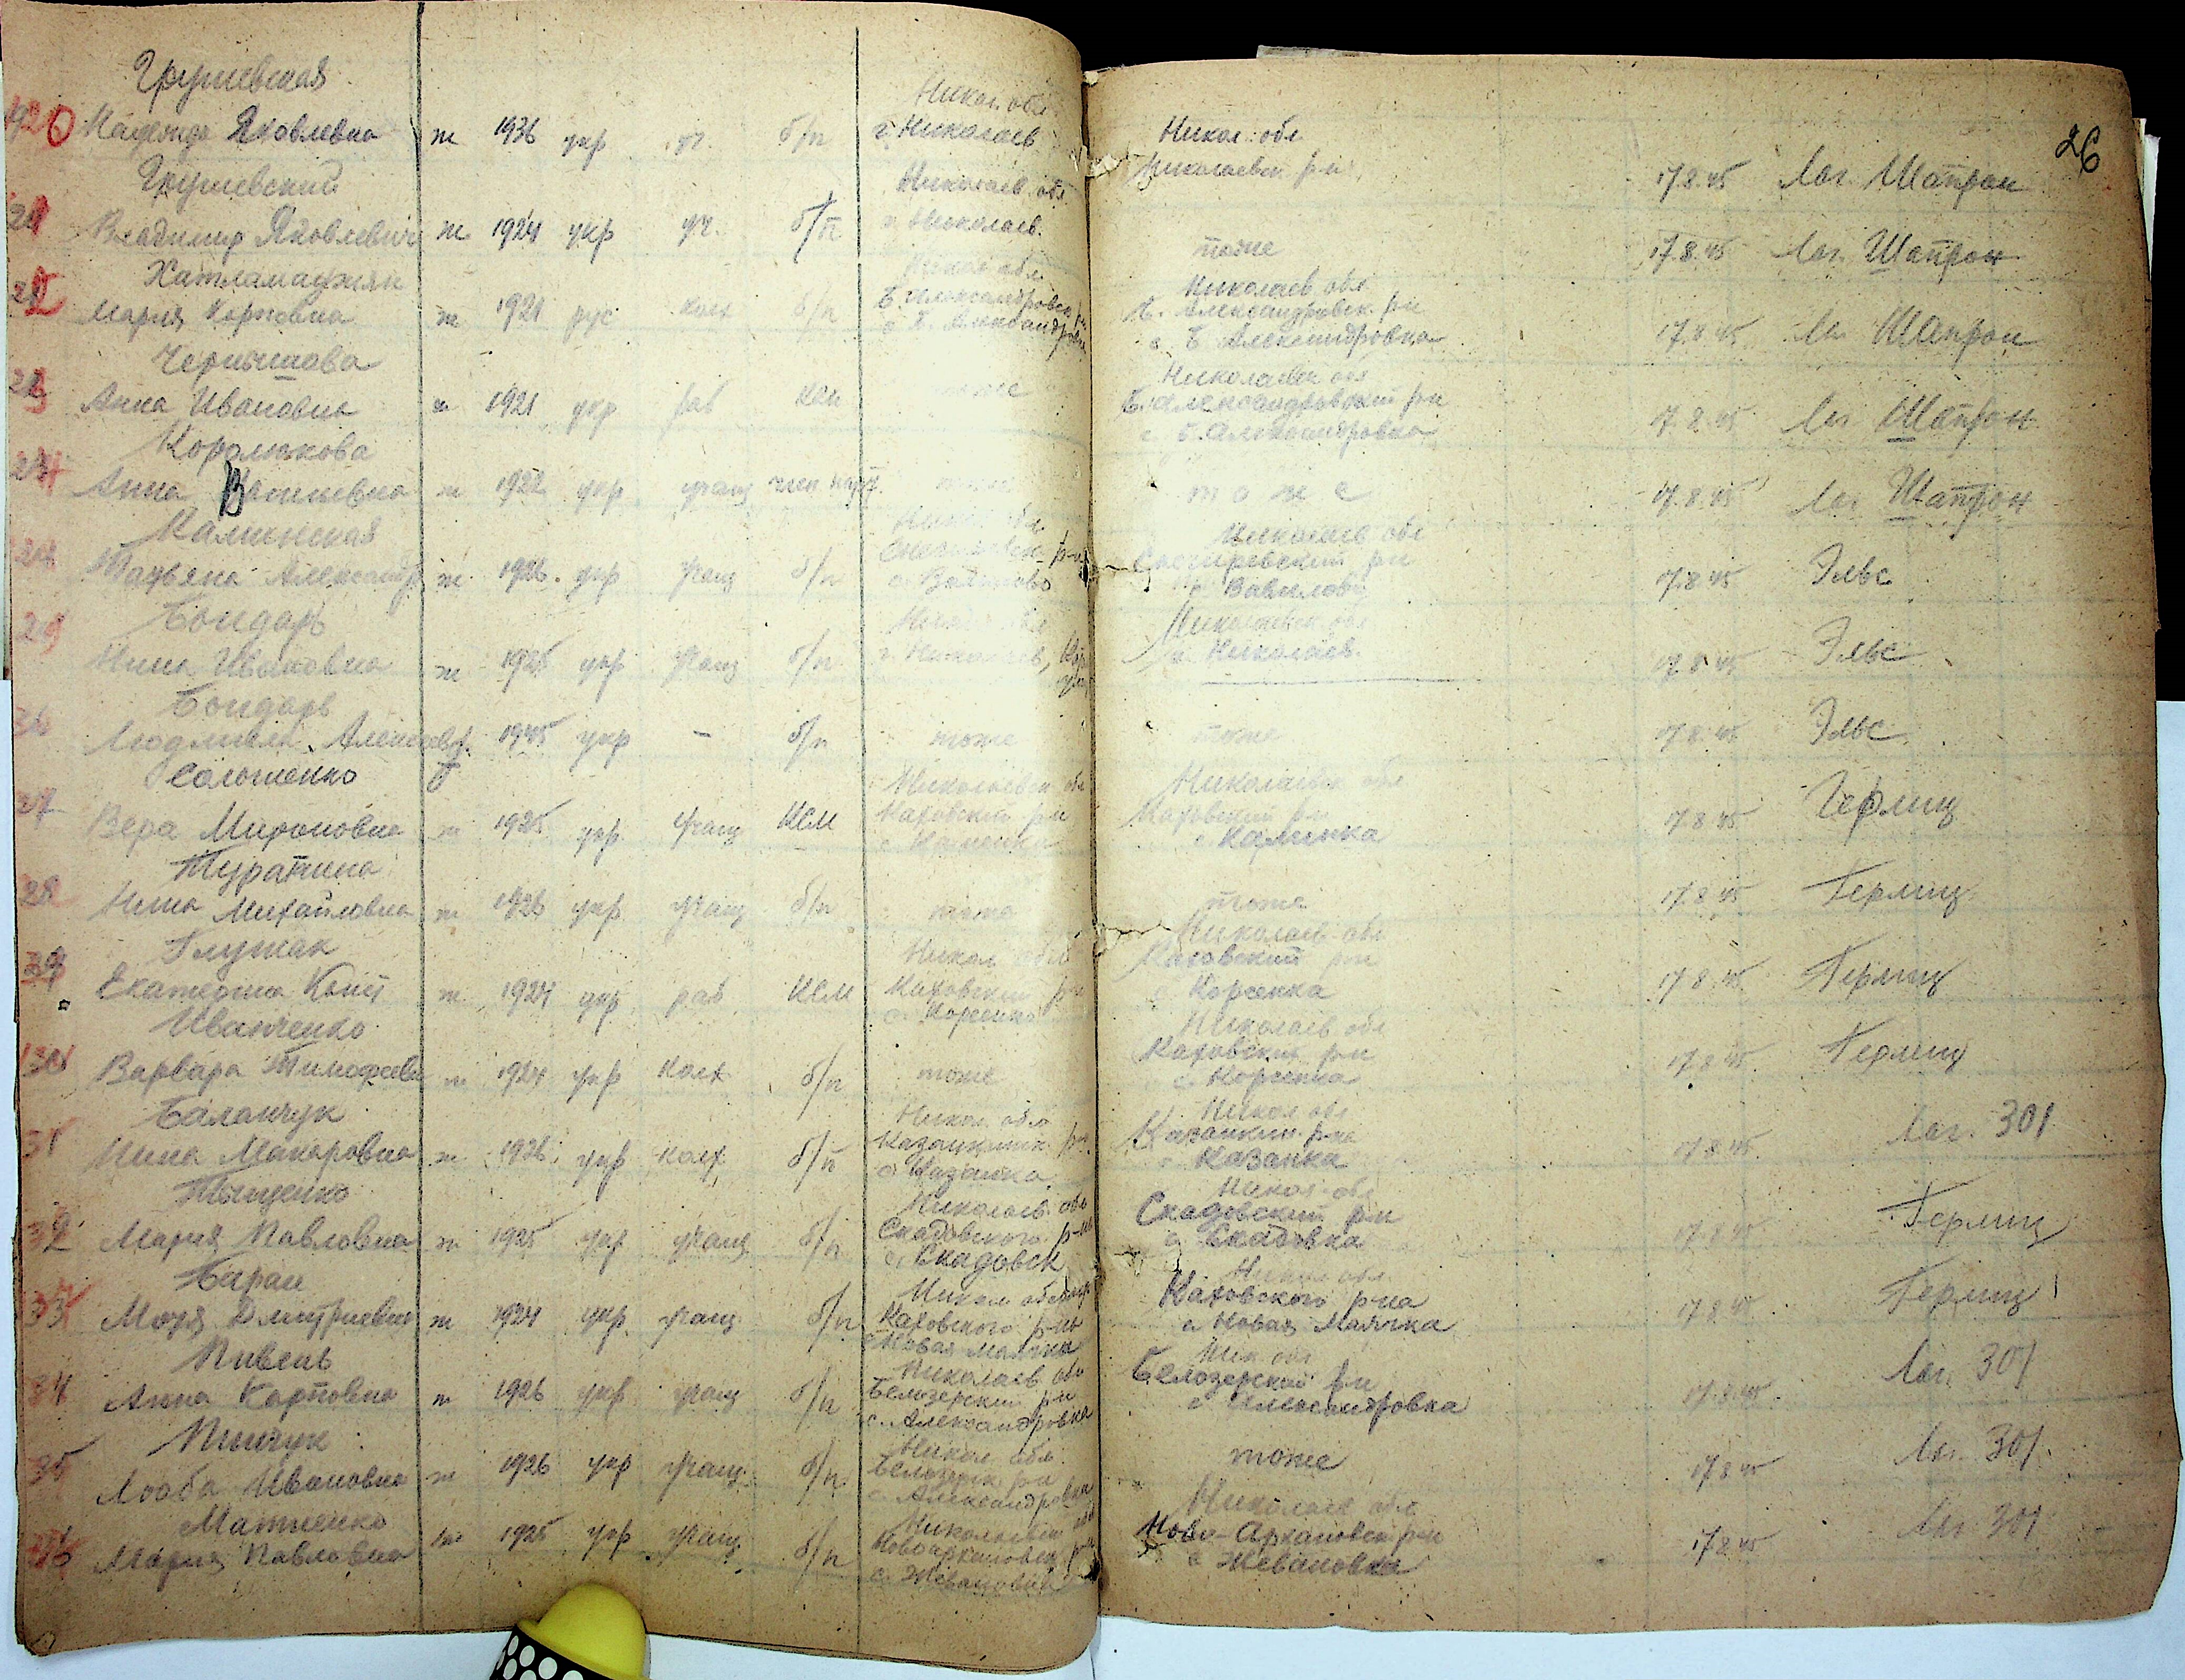 26
Грушевская
1920 Надежда Яковлевна ж 1936 укр уч. б/п Никол. обл г. Николаев Никол. обл Николаевск р-н 17.8.45 Лаг. Шапрон
Грушевский
21 Владимир Яковлевич ж 1924 укр уч. б/п Николаев. обл г. Николаев. тоже 17.8.45 Лаг. Шапрон
Хатламаджиян
22 Мария Карповна ж 1921 рус колх б/п Никол обл Б. Александровск р-н с. Б. Александровка Николаев обл Б. Александровск. р-н с. Б. Александровка 17.8.45 Лаг Шапрон
Чернышова
23 Анна Ивановна ж 1921 укр раб КСМ тоже Николаевск обл Б. Александровский р-н с. Б. Александровка 17.8.45 Лаг Шапрон
Королькова
24 Анна ж 1922 укр учащ член тоже тоже 17.8.45 Лаг Шапрон
Калинская
Татьяна Александр ж. 1926. укр учащ б/п Никол обл р-н с. Николаев обл Снегиревский р-н Вавилово 17.8.45 Эльс
Бондарь
Нина Ивановна ж 1925 укр учащ б/п г. Николаев, Николаевск. обл г. Николаев. 17.8.45 Эльс
Бондарь
Людмила ж 1945 укр – б/п тоже тоже 17.8.45 Эльс
Солошенко
27 Вера Мироновна ж 1925 укр. учащ КСМ Николаевск обл Каховский р-н с. Каменка Николаевск обл Каховский р-н с. Калинка 17.8.45 Герлиц
Туратина
28 Нина Михайловна ж 1926 укр учащ б/п тоже тоже 17.8.45 Герлиц
Глушак
29 Екатерина ж 1924 укр раб КСМ Никол обл Каховский р-н с. Корсенка Николаев обл Каховский р-н с Корсенка 17.8.45 Герлиц
Иванченко
130 Варвара Тимофеевн ж 1924 укр колх б/п тоже Николаев обл Каховский р-н с. Корсенка 17.8.45 Герлиц
Баланчук
31 Нина Макаровна ж 1926. укр колх б/п Никол. обл Казанкинск. р-н. с Казанка Никол обл Казанкин. р-на с Казанка 17.8.45. Лаг. 301
Тищенко
32 Мария Павловна ж 1925 укр учащ б/п Николаев. обл Скадовского р-на с. Скадовск Никол обл Скадовский р-н с Скадовка 17.8.45 Герлиц
Баран
33 Мария Дмитриевна ж 1924 укр. учащ б/п Никол обл Каховского р-на с Новая Маячка Никол обл. Каховского р-на с Новая Маячка 17.8.45 Герлиц
Пивень
34 Анна Карповна ж 1926 укр учащ б/п Николаев. обл Белозерский р-н с. Александровка Ник обл Белозерский р-н с Александровка 17.8.45. Лаг. 301
Пинчук
35 Люба Ивановна ж 1926 укр учащ. б/п Никол. обл. р-н с. Александровка тоже 17.8.45 Лаг. 301.
Матиенко
36 Мария Павловна ж 1925 укр учащ б/п Николаевск обл р-н с. Жевановка Николаев обл Ново-Архановск р-н с Жевановка 17.8.45 Лаг 301